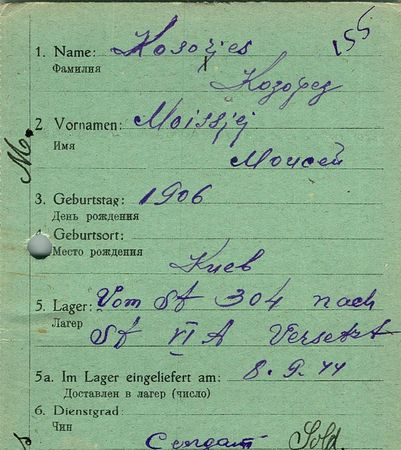 155
1. Name: Kosorjes
Фамилия
Козорез
2. Vornamen: Moissjej
Имя
Моисей
M.
3. Geburtstag: 1906
День рождения
4. Geburtsort:
Место рождения
Киев
5. Lager: Vom St 304 nach
Лагер
St VI A Versetzt
5a. Im Lager eingeliefert am: 8.9.44
Доставлен в лагер (число)
6. Dienstgrad:
Чин
Sold.